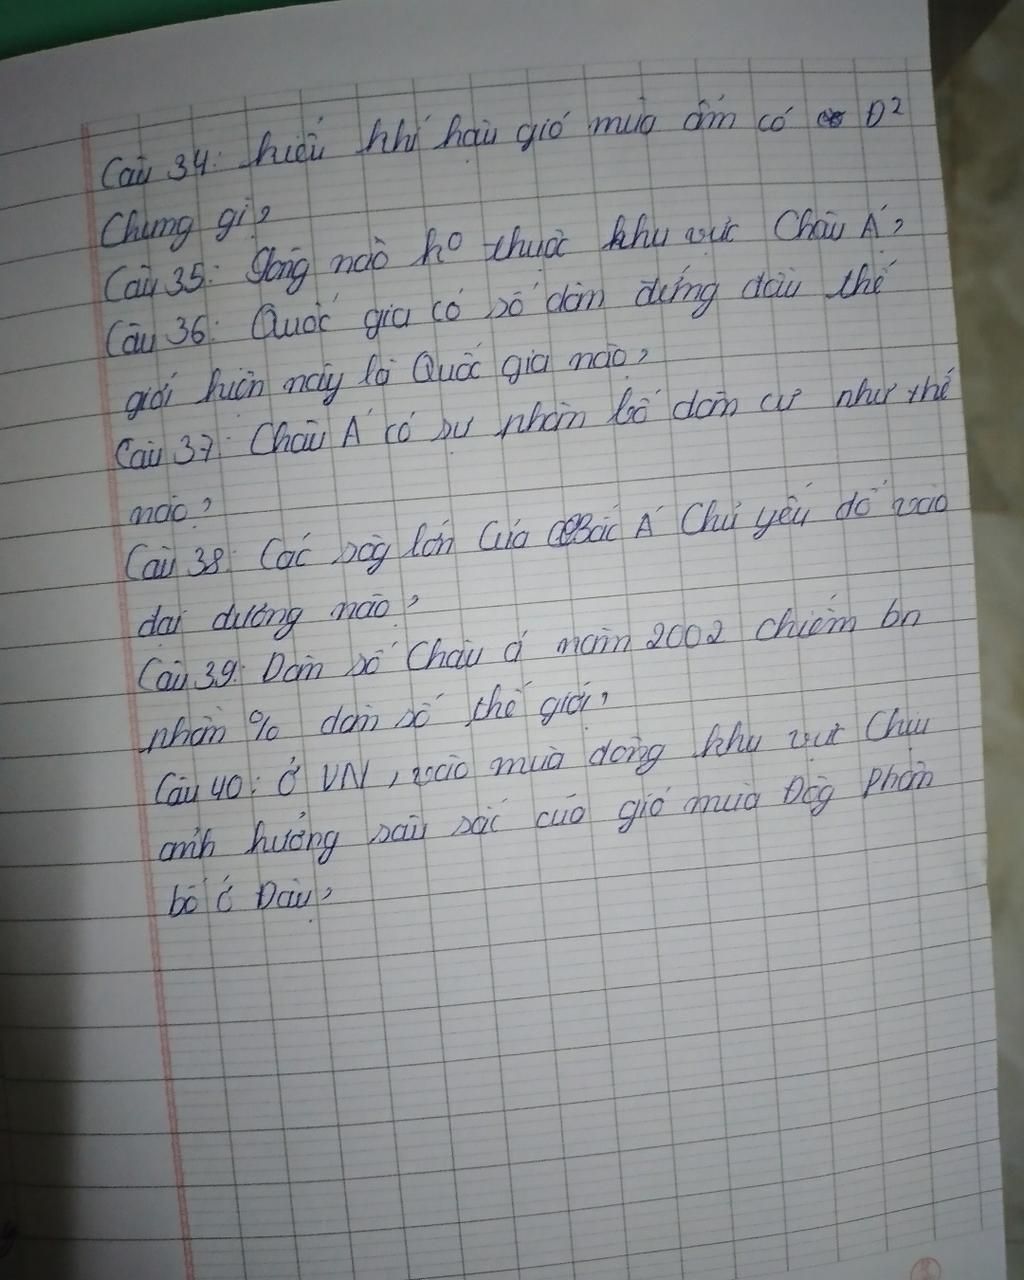 Câu 34: kiểu khí hậu gió mùa ẩm có Đ²
Chung gì?
Câu 35: Sông nào ko thuộc khu vực Châu Á?
Câu 36: Quốc gia có số dân đứng đầu thế
giới hiện nay là Quốc gia nào?
Câu 37: Châu Á có sự phân bố dân cư như thế
nào?
Câu 38: Các sôg lớn Của Bắc Á Chủ yếu đổ vào
đại dương nào?
Câu 39: Dân số Châu á năm 2002 chiếm bn
phần % dân số thế giới?
Câu 40: Ở VN, vào mùa đông khu vực Chịu
ảnh hưởng sâu sắc của gió mùa Đôg phân
bố ở Đâu?